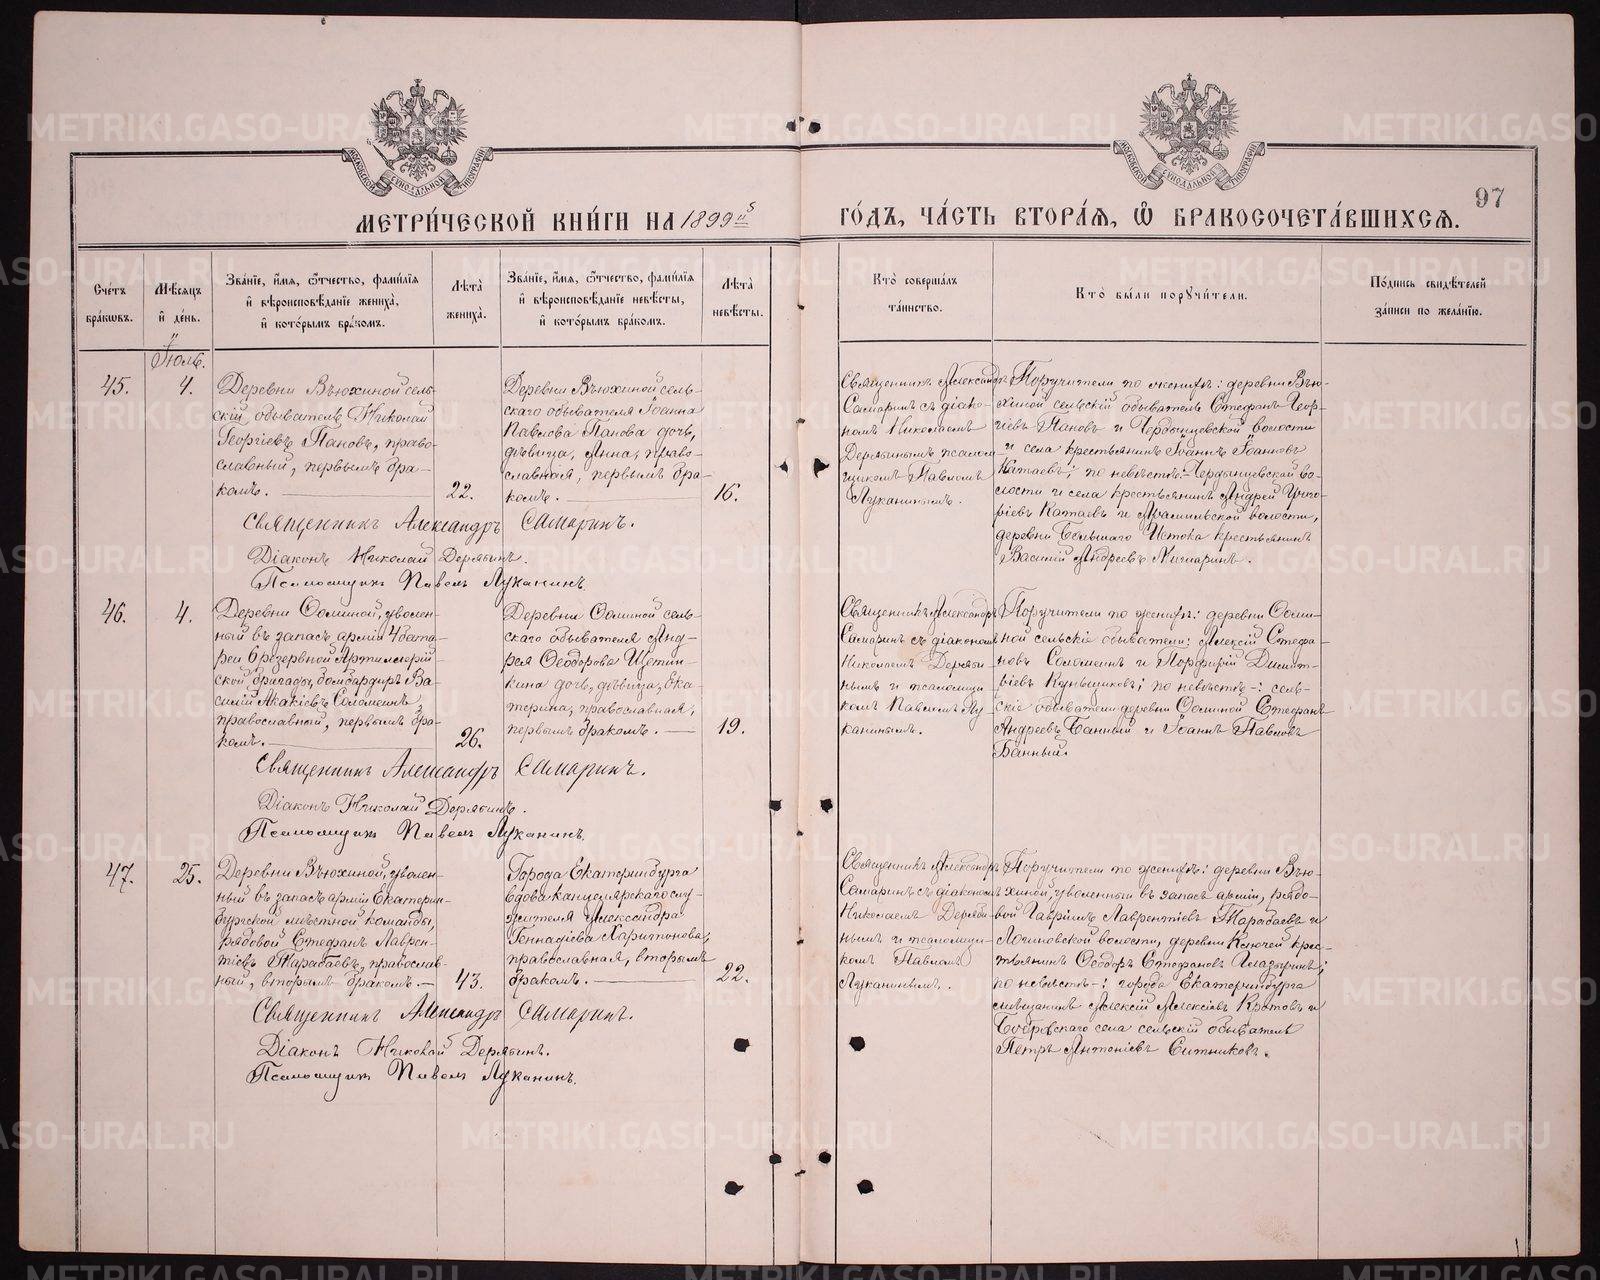 97
МЕТРИ́ЧЕСКОЙ КНИ́ГИ НА 1899й
ГО́ДЪ, ЧА́СТЬ ВТОРА́Ѧ, Ѽ БРАКОСОЧЕТА́ВШИХСѦ.
Сче́тъ бра́кѡвъ.
Мѣ́сѧцъ и҆ де́нь.
Зва́нїе, и҆́мѧ, ѻ҆́тчество, фами́лїѧ и҆ вѣроисповѣ́данїе жениха̀, и҆ кото́рымъ бра́комъ.
Лѣ́та жениха̀.
Зва́нїе, и҆́мѧ, ѻ҆́тчество, фами́лїѧ и҆ вѣроисповѣ́данїе невѣ́сты, и҆ кото́рымъ бра́комъ.
Лѣ́та невѣ́сты.
Кто̀ соверша́лъ та́инство.
Кто̀ бы́ли порꙋчи́тели.
По́дпись свидѣ́телей за́писи по жела́нїю.
Іюль.
45.
4.
Деревни Вьюхиной сель-
скій обыватель Николай
Георгіевъ Пановъ, право-
славный, первымъ бра-
комъ.
22.
Деревни Вьюхиной сель-
скаго обывателя Іоанна
Павлова Панова дочь,
дѣвица, Анна, право-
славная, первымъ бра-
комъ.
16.
Священникъ Александръ
Самаринъ съ діако-
номъ Николаемъ
Дерябинымъ псалом-
щикомъ Павломъ
Луканинымъ.
Поручители по женихѣ: деревни Вью-
хиной сельскій обыватель Стефанъ Геор-
гіевъ Пановъ и Чердынцевской волости
и села крестьянинъ Іоаннъ Іоанновъ
Катаевъ; по невѣстѣ: Чердынцевской во-
лости и села крестьянинъ Андрей Григо-
ріевъ Катаевъ и Арамильской волости,
деревни Большаго Истока крестьянинъ
Василій Андреевъ
Священникъ Александръ Самаринъ.
Діаконъ Николай Дерябинъ.
Псаломщикъ Павелъ Луканинъ.
46.
4.
Деревни Ѳоминой, уволен-
ный въ запасъ арміи 4 бата-
реи 6 резервной Артиллерій-
ской бригады, бомбардиръ Ва-
силій Акакіевъ Соломеинъ,
православный, первымъ бра-
комъ.
26.
Деревни Ѳоминой сель-
скаго обывателя Анд-
рея Ѳеодорова Щетин-
кина дочь, дѣвица, Ека-
терина, православная,
первымъ бракомъ.
19.
Священникъ Александръ
Самаринъ съ діакономъ
Николаемъ Деряби-
нымъ и псаломщи-
комъ Павломъ Лу-
канинымъ.
Поручители по женихѣ: деревни Ѳоми-
ной сельскіе обыватели: Алексій Стефа-
новъ Соломеинъ и Порфирій Димит-
ріевъ Кунгщиковъ; по невѣстѣ-: сель-
скіе обыватели деревни Ѳоминой Стефанъ
Андреевъ Банный и Іоаннъ Павловъ
Банный.
Священникъ Александръ Самаринъ.
Діаконъ Николай Дерябинъ.
Псаломщикъ Павелъ Луканинъ.
47.
25.
Деревни Вьюхиной, уволен-
ный въ запасъ арміи Екатерин-
бургской мѣстной команды,
рядовой Стефанъ Лаврен-
тіевъ Тарабаевъ, православ-
ный, вторымъ бракомъ.
43.
Города Екатеринбурга
вдова канцелярскаго слу-
жителя Александра
Геннадіева Харитонова,
православная, вторымъ
бракомъ.
22.
Священникъ Александръ
Самаринъ съ діакономъ
Николаемъ Деряби-
нымъ и псаломщи-
комъ Павломъ
Луканинымъ.
Поручители по женихѣ: деревни Вью-
хиной, уволенный въ запасъ арміи, рядо-
вой Гавріилъ Лаврентіевъ Тарабаевъ и
Логиновской волости, деревни Ключей крес-
тьянинъ Ѳеодоръ Стефановъ Глазыринъ;
по невѣстѣ-: города Екатеринбурга
мѣщанинъ Алексій Алексіевъ Кротовъ и
Бобровскаго села сельскій обыватель
Петръ Антоніевъ Ситниковъ.
Священникъ Александръ Самаринъ.
Діаконъ Николай Дерябинъ.
Псаломщикъ Павелъ Луканинъ.
METRIKI.GASO-URAL.RU